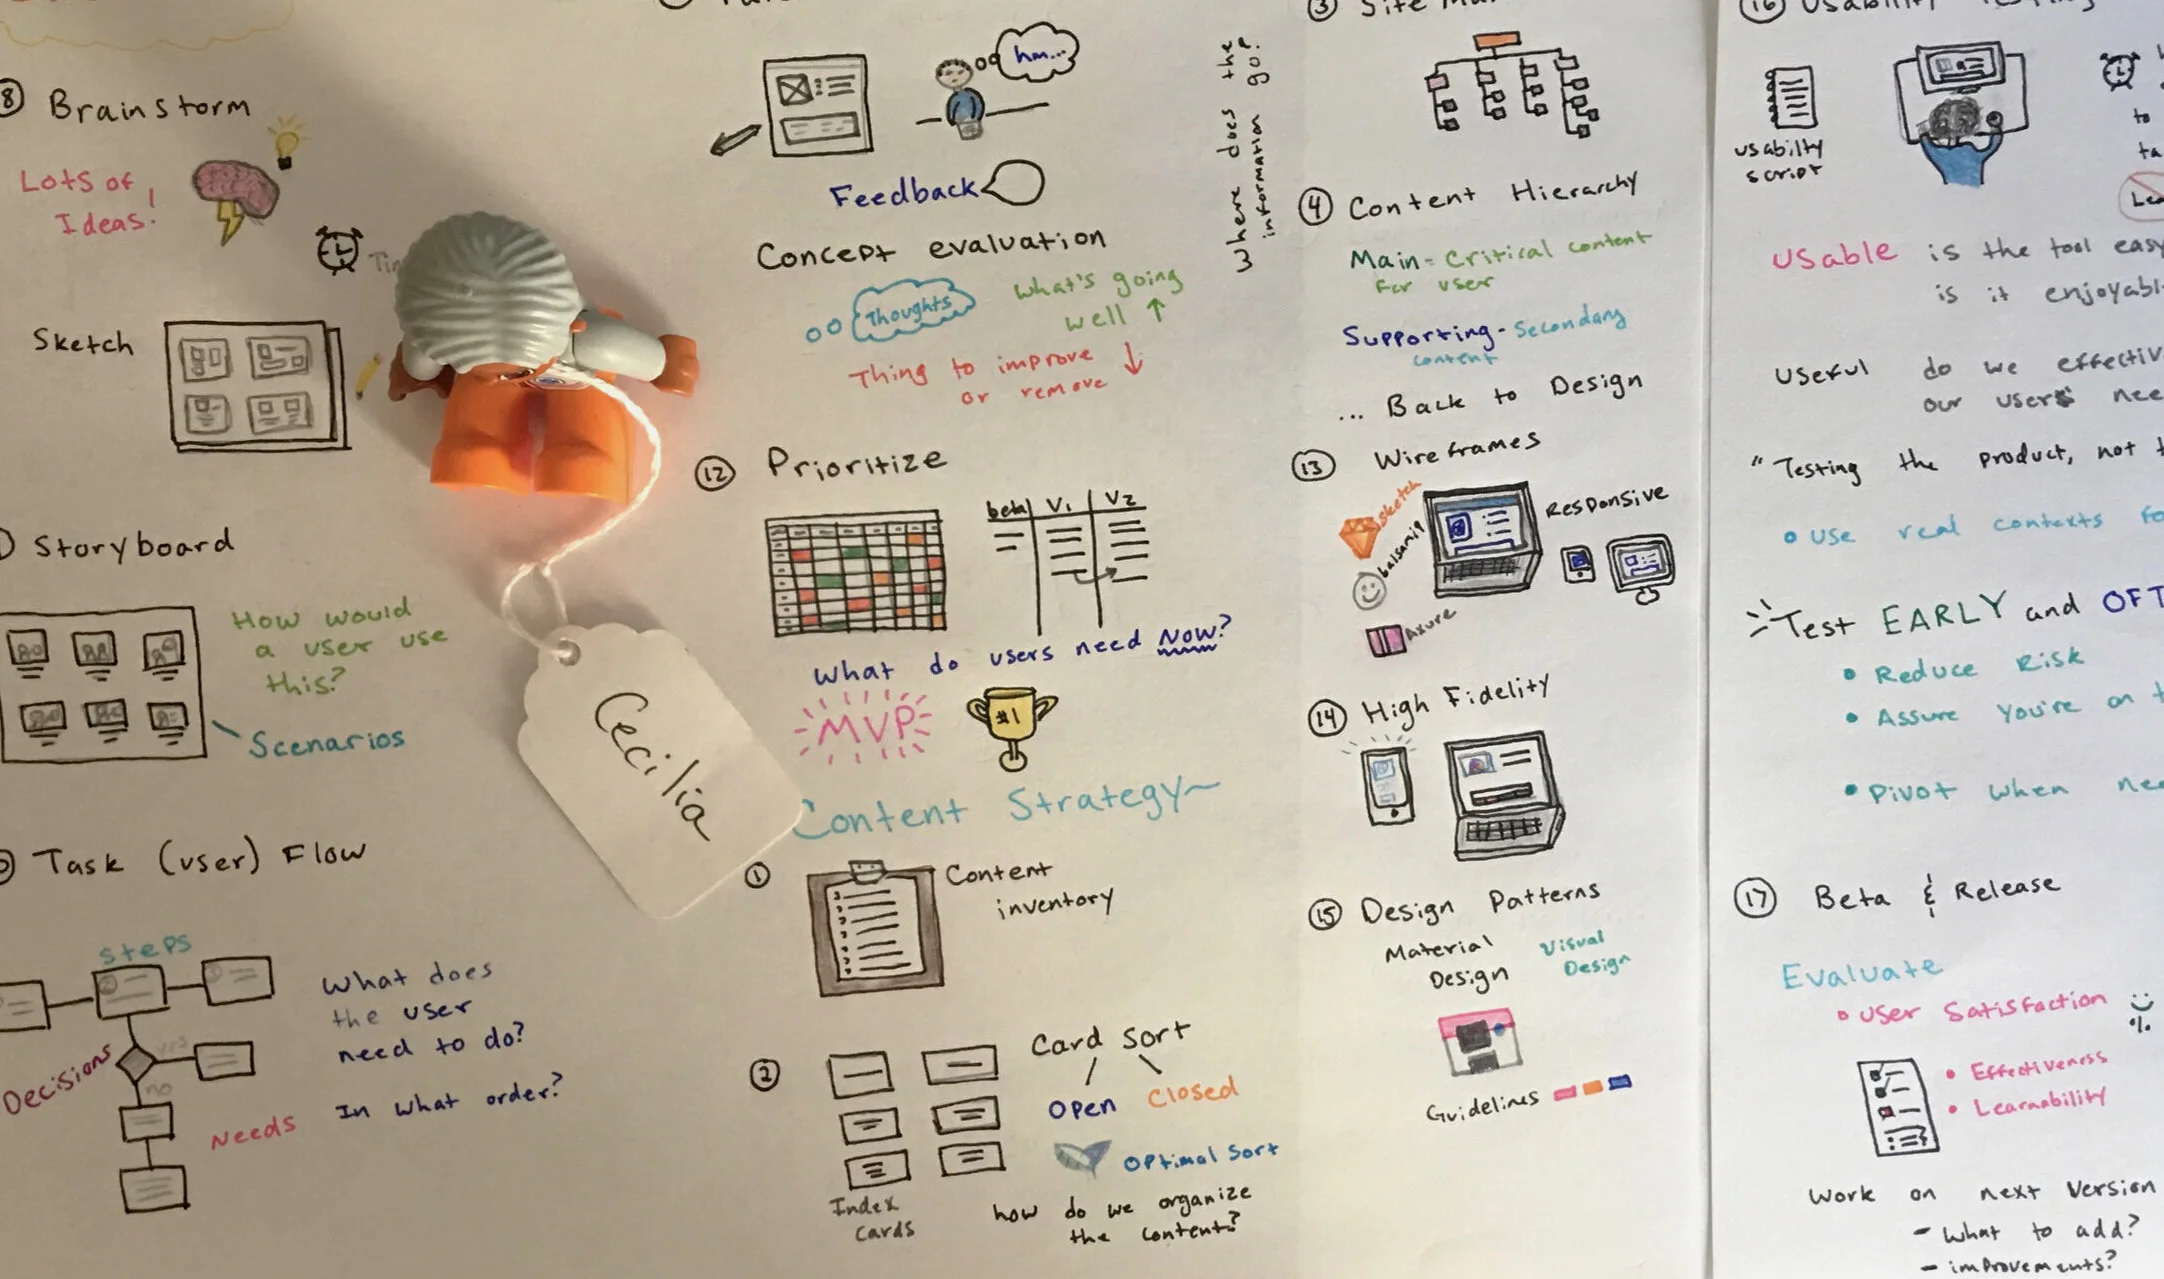 8 Brainstorm
Lots of
Ideas!
Sketch
Storyboard
How would
a user use
this?
Scenarios
Task (user) Flow
Steps
Decisions
yes
no
Needs
What does
the user
need to do?
In what order?
Cecilia
hm...
Feedback
Concept evaluation
Thoughts
What's going
well ↑
Thing to improve ↓
or remove
12 Prioritize
beta V1 V2
What do users need Now?
MVP
#1
Content Strategy~
1 Content
inventory
2 Card Sort
Open Closed
Optimal Sort
Index
Cards
how do we organize
the content?
Where does the
information go?
3
4 Content Hierarchy
Main = Critical content
For user
Supporting - Secondary
content
... Back to Design
13 Wireframes
Sketch
balsamiq
Axure
Responsive
14 High Fidelity
15 Design Patterns
Material
Design
Visual
Design
Guidelines
16 Usability Testing
usabilty
script
to
Usable is the tool easy
is it
Useful do we
our users
"Testing the product, not
Use real contexts
Test EARLY and
Reduce Risk
Assure You're on
Pivot when
17 Beta & Release
Evaluate
User Satisfaction
%
Effectiveness
Learnability
Work on next version
- What to add?
- improvements?